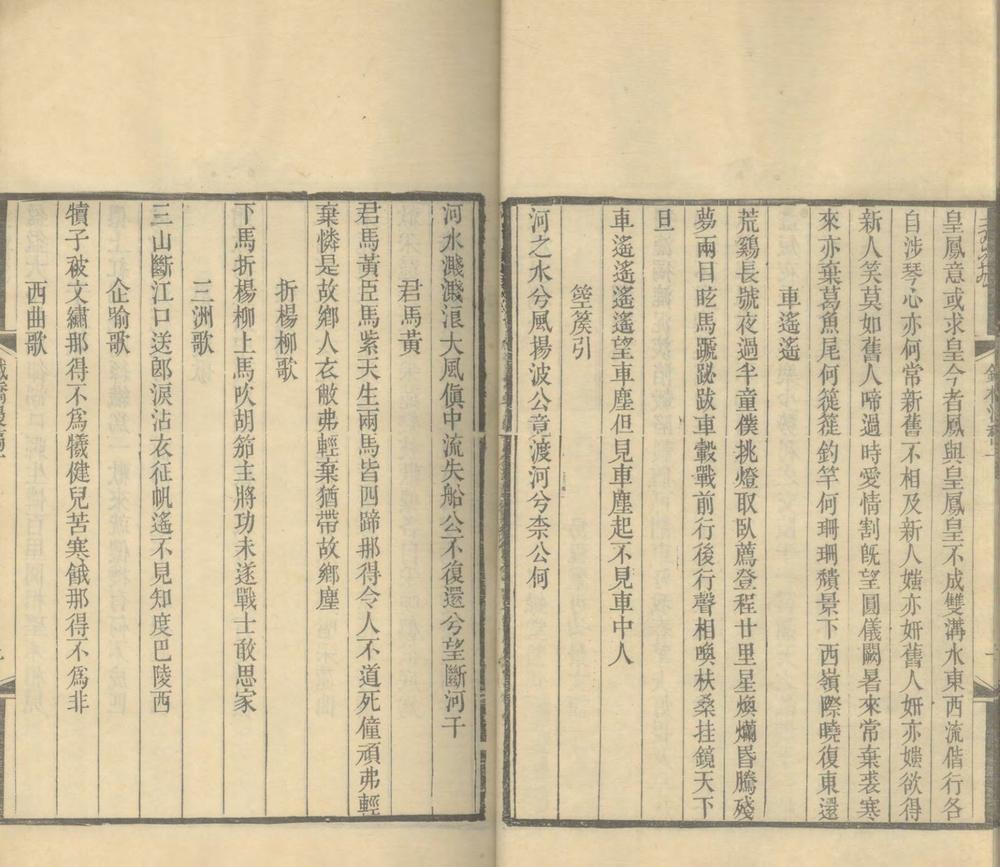 皇鳳意或求皇今者鳳與皇鳳皇不成雙溝水東西流偕行各
自涉琴心亦何常新舊不相及新人媸亦妍舊人妍亦媸欲得
新人笑莫如舊人啼過時愛情割旣望圓儀闕暑來常棄裘寒
來亦棄葛魚尾何簁簁釣竿何珊珊穨景下西嶺際曉復東還
車遙遙
荒鷄長號夜過半童僕挑燈取臥薦登程廿里星煥爛昏騰殘
夢兩目眩馬蹏跛車轂戰前行後行聲相喚枎桑挂鏡天下
旦
車遙遙遙遙望車塵但見車塵起不見車中人
箜篌引
河之水兮風揚波公竟渡河兮柰公何
河水濺濺浪大風傎中流失船公不復還兮望斷河干
君馬黃
君馬黃臣馬紫天生兩馬皆四蹄那得令人不道死僮頑弗輕
棄憐是故鄉人衣敝弗輕棄猶帶故鄉塵
折楊柳歌
下馬折楊柳上馬吹胡笳主將功未遂戰士敢思家
三洲歌
三山斷江口送郎淚沾衣征帆遙不見知度巴陵西
企喻歌
犢子被文繡那得不爲犧健兒苦寒餓那得不爲非
西曲歌